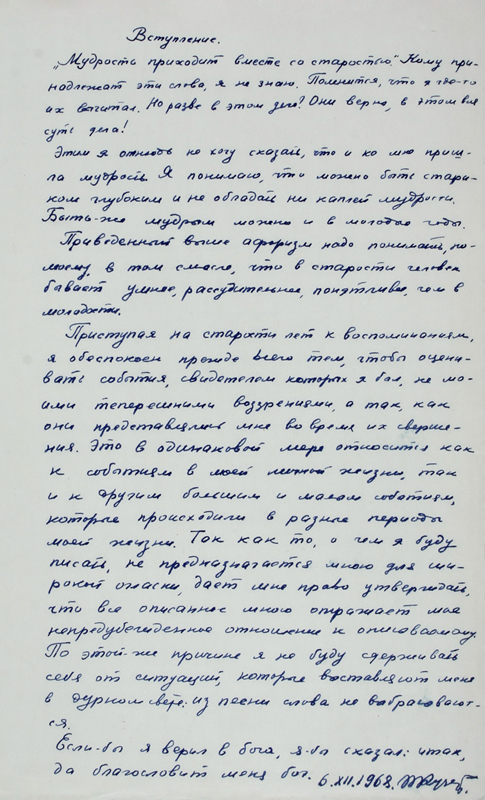 Вступление.
„Мудрость приходит вместе со старостью." Кому при-
надлежат эти слова, я не знаю. Помнится, что я где-то
их вычитал. Но разве в этом дело? Они верно, в этом вся
суть дела!
Этим я отнюдь не хочу сказать, что и ко мне приш-
ла мудрость. Я понимаю, что можно быть стари-
ком глубоким и не обладать ни каплей мудрости.
Быть-же мудрым можно и в молодые годы.
Приведенный выше афоризм надо понимать, по-
моему, в том смысле, что в старости человек
бывает умнее, рассудительнее, понятливее, чем в
молодости.
Приступая на старости лет к воспоминаниям,
я обеспокоен прежде всего тем, чтобы оцени-
вать события, свидетелем которых я был, не мо-
ими теперешними воззрениями, а так, как
они представлялись мне во время их сверше-
ния. Это в одинаковой мере относится как
к событиям в моей личной жизни, так
и к другим большим и малым событиям,
которые происходили в разные периоды
моей жизни. Так как то, о чем я буду
писать, не предназначается мною для ши-
рокой огласки, дает мне право утверждать,
что все описанное мною отражает мое
непредубежденное отношение к описываемому.
По этой-же причине я не буду сдерживать
себя от ситуаций, которые выставляют меня
в дурном свете: из песни слова не выбрасывают-
ся.
Если-бы я верил в бога, я-бы сказал: итак,
да благословит меня бог. 6.XII.1968.